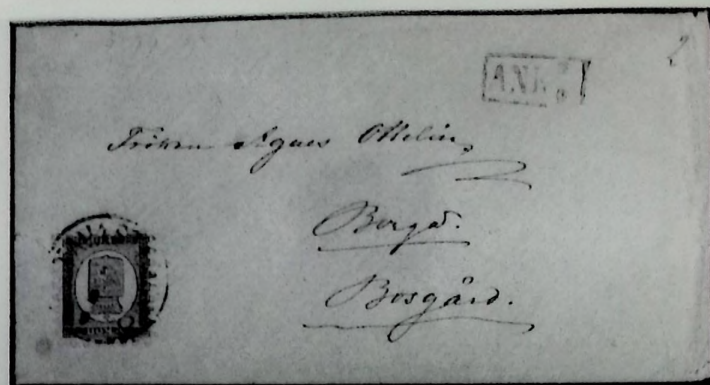 2
ANK.
Fröken Agnes Ottelin
Borgå.
Bosgård.